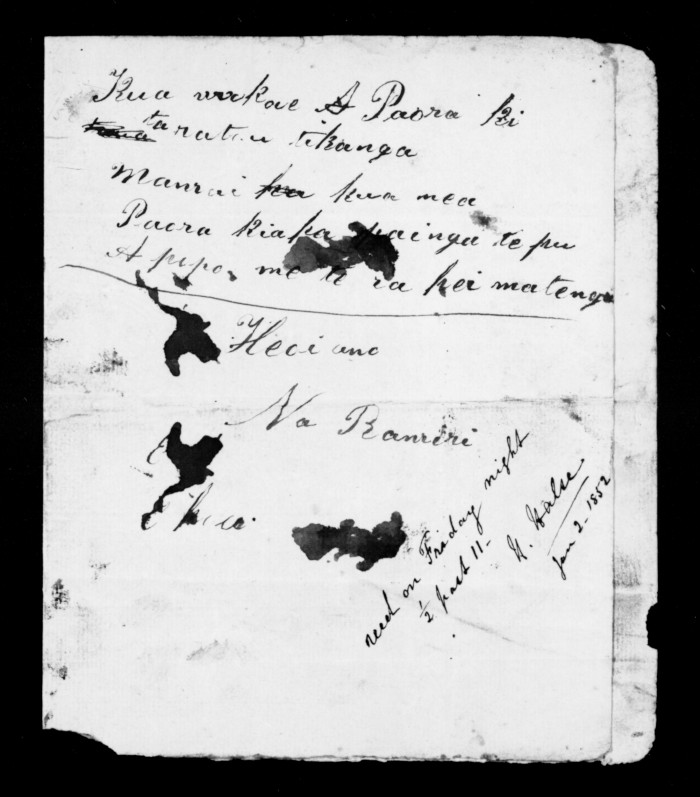 Kua wrkae A Paora ki
taratou tikanga
Manrai kua mea
Paora kiaka painga te pu
A pipo, me te ra hei matenga
Heoi ano
Na Ramriri
recd on Friday night
½ past 11-
H. Halse.
Jan 2-1852